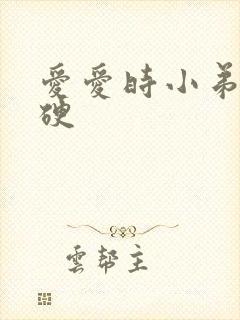 愛愛時小弟
硬
雲幫主